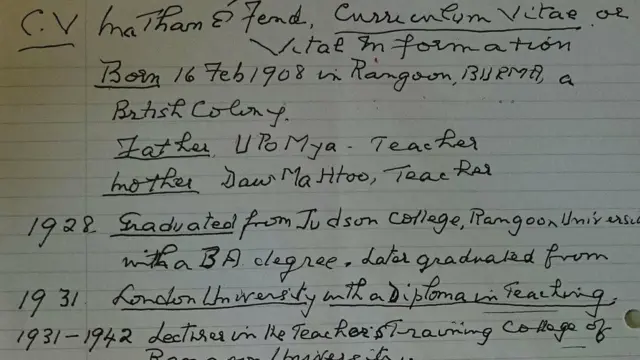 C.V Ma Than E Fend, Curriculum Vitae or
Vital Information
Born 16 Feb 1908 in Rangoon, BURMA, a
British Colony.
Father U Po Mya - Teacher
Mother Daw Ma Htoo, Teacher
1928 Graduated from Judson College, Rangoon Universi
with a BA degree. Later graduated from
1931 London University with a Diploma in Teaching,
1931-1942 Lecturer in the Teacher's Training College of
Rangoon University